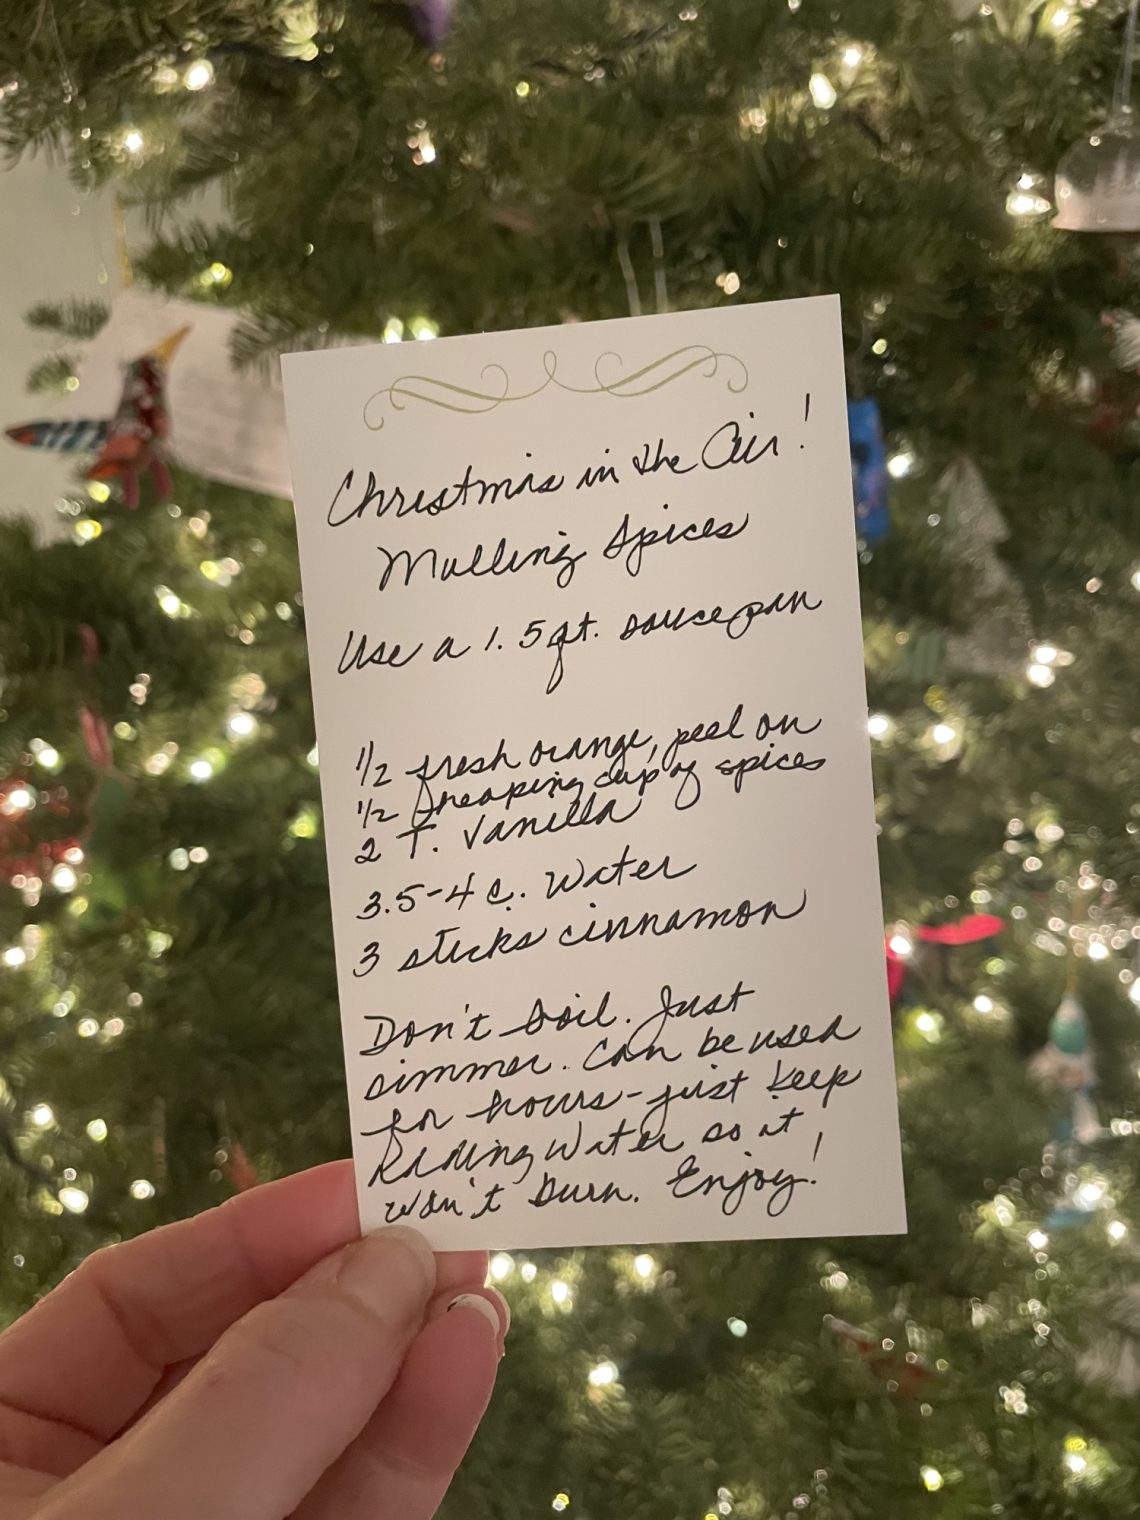 Christmas in the Air!
Mulling Spices
Use a 1.5 qt. saucepan
1/2 fresh orange, peel on
1/2 heaping cup of spices
2 T. Vanilla
3.5-4 c. water
3 sticks cinnamon
Don't boil. Just
simmer. Can be used
for hours-just keep
adding water so it
won't burn. Enjoy!